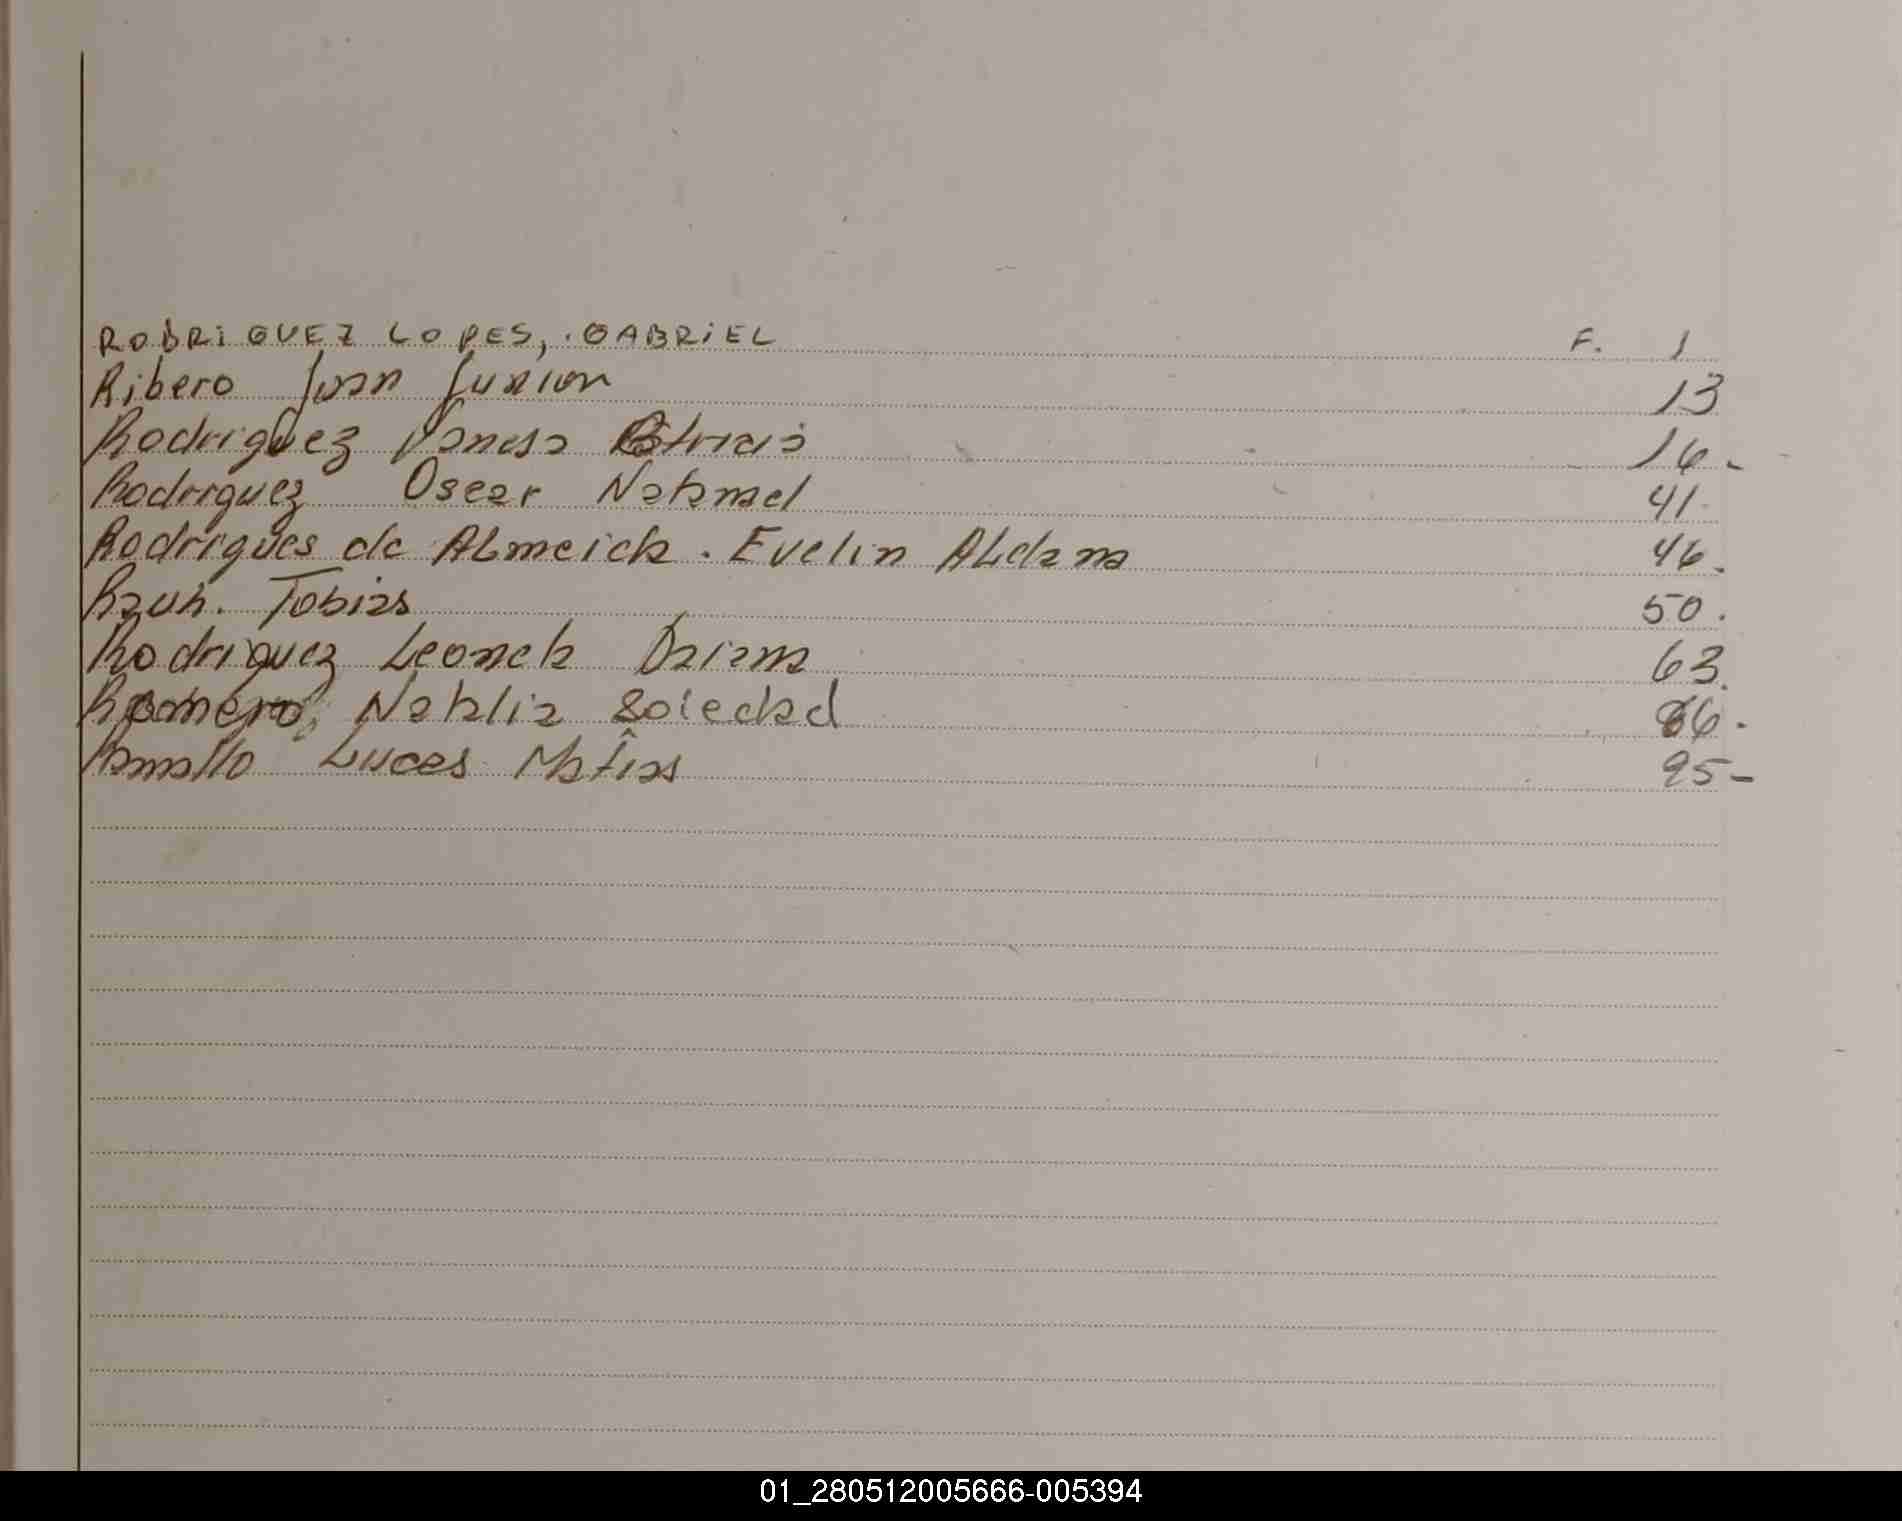 RODRIGUEZ LOPES, GABRIEL F. 1
Ribero Juan Junior 13
Rodriguez Vanesa Patricia 16-
Rodriguez Oscar Natanael 41.
Rodrigues de Almeida. Evelin Aldana 46.
Tobias 50.
Rodriguez Leonela Daiana 63.
Romero, Natalia Soledad 66.
Ramallo Lucas Matias 95-
01_280512005666-005394